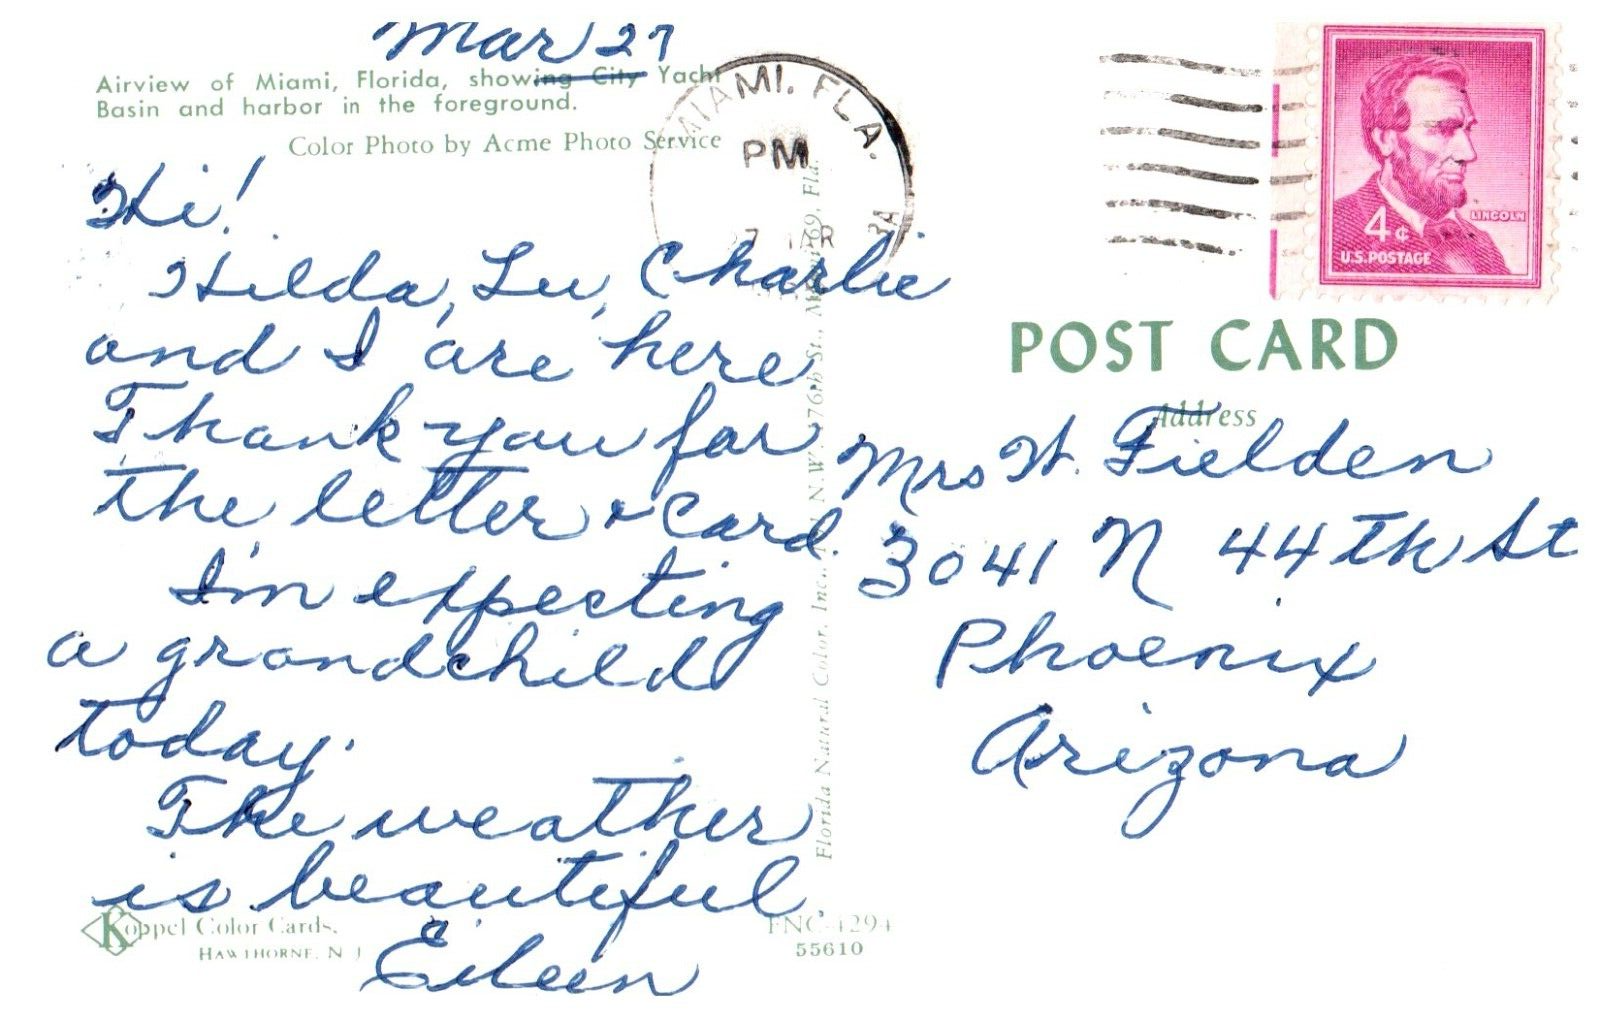 Mar 27
Airview of Miami, Florida, showing City Yacht
Basin and harbor in the foreground.
Color Photo by Acme Photo Service
Hi!
Hilda, Lu, Charlie
and I are here
Thank you for
the letter & card.
I'm expecting
a grandchild
today.
The weather
is beautiful.
Eileen
Koppel Color Cards.
HAWTHORNE, N J
FNC-4294
55610
Florida Natural Color, Inc., N.W. 176th St., Miami 69, Fla.
MIAMI, FLA.
PM
LINCOLN
4¢
U.S. POSTAGE
POST CARD
Address
Mrs H. Fielden
3041 N 44th St
Phoenix
Arizona